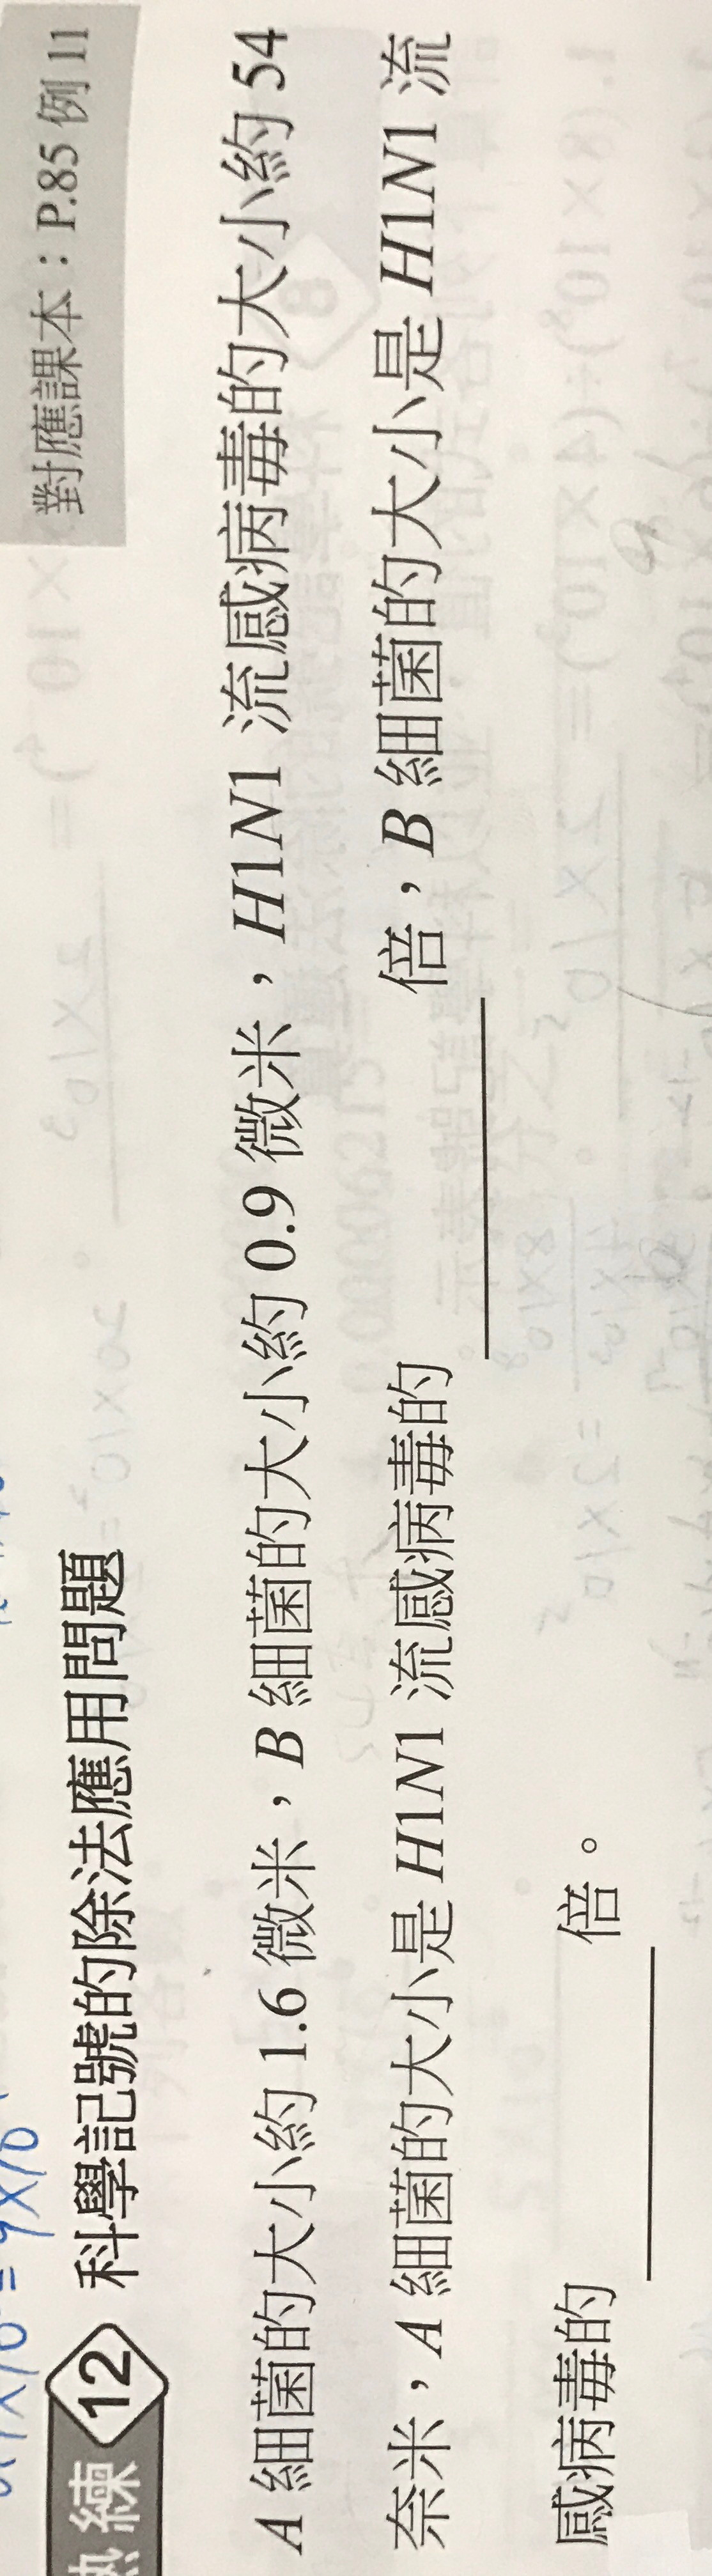 對應課本：P.85 例 11
熟練 12 科學記號的除法應用問題
A 細菌的大小約 1.6 微米，B 細菌的大小約 0.9 微米，H1N1 流感病毒的大小約 54
奈米，A 細菌的大小是 H1N1 流感病毒的＿＿＿＿倍，B 細菌的大小是 H1N1 流
感病毒的＿＿＿＿倍。